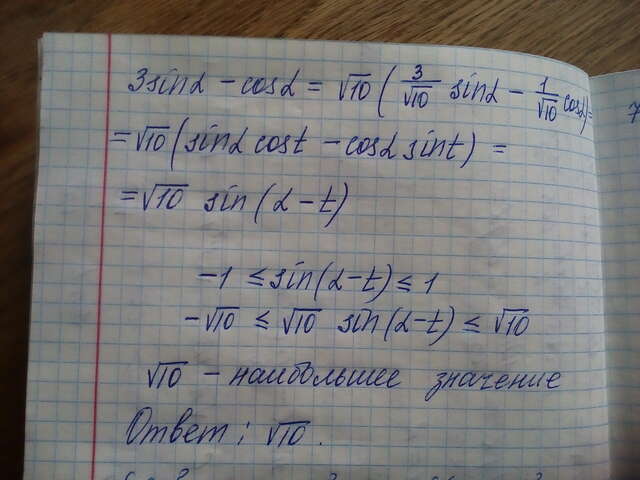 3sinα − cosα = √10 ( 3/√10 sinα − 1/√10 cosα) =
= √10 (sinα cost − cosα sint) =
= √10 sin(α − t)
−1 ≤ sin(α−t) ≤ 1
−√10 ≤ √10 sin(α−t) ≤ √10
√10 − наибольшее значение
Ответ: √10.